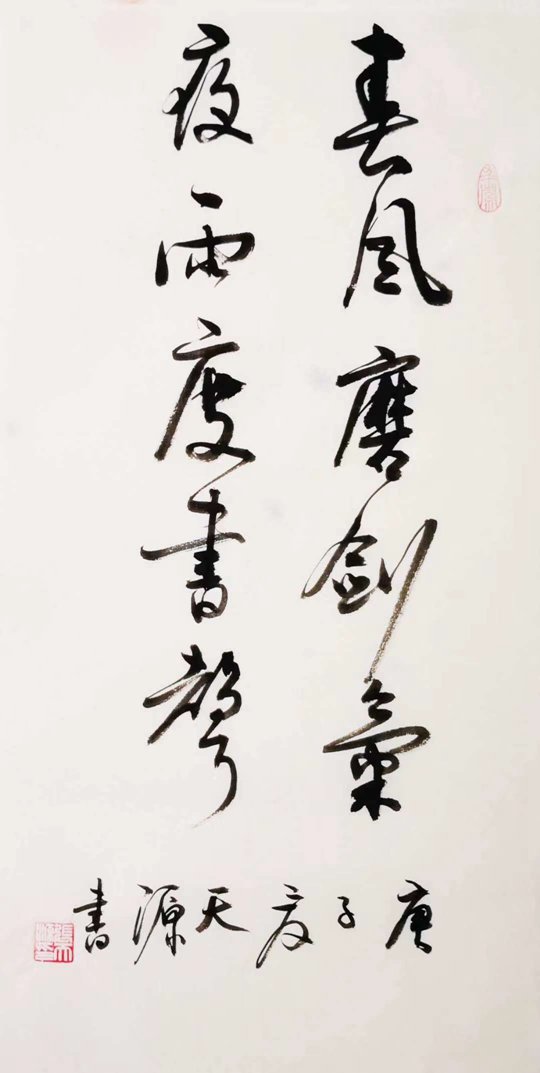 春風磨劍氣
夜雨度書聲
庚子夏天源書